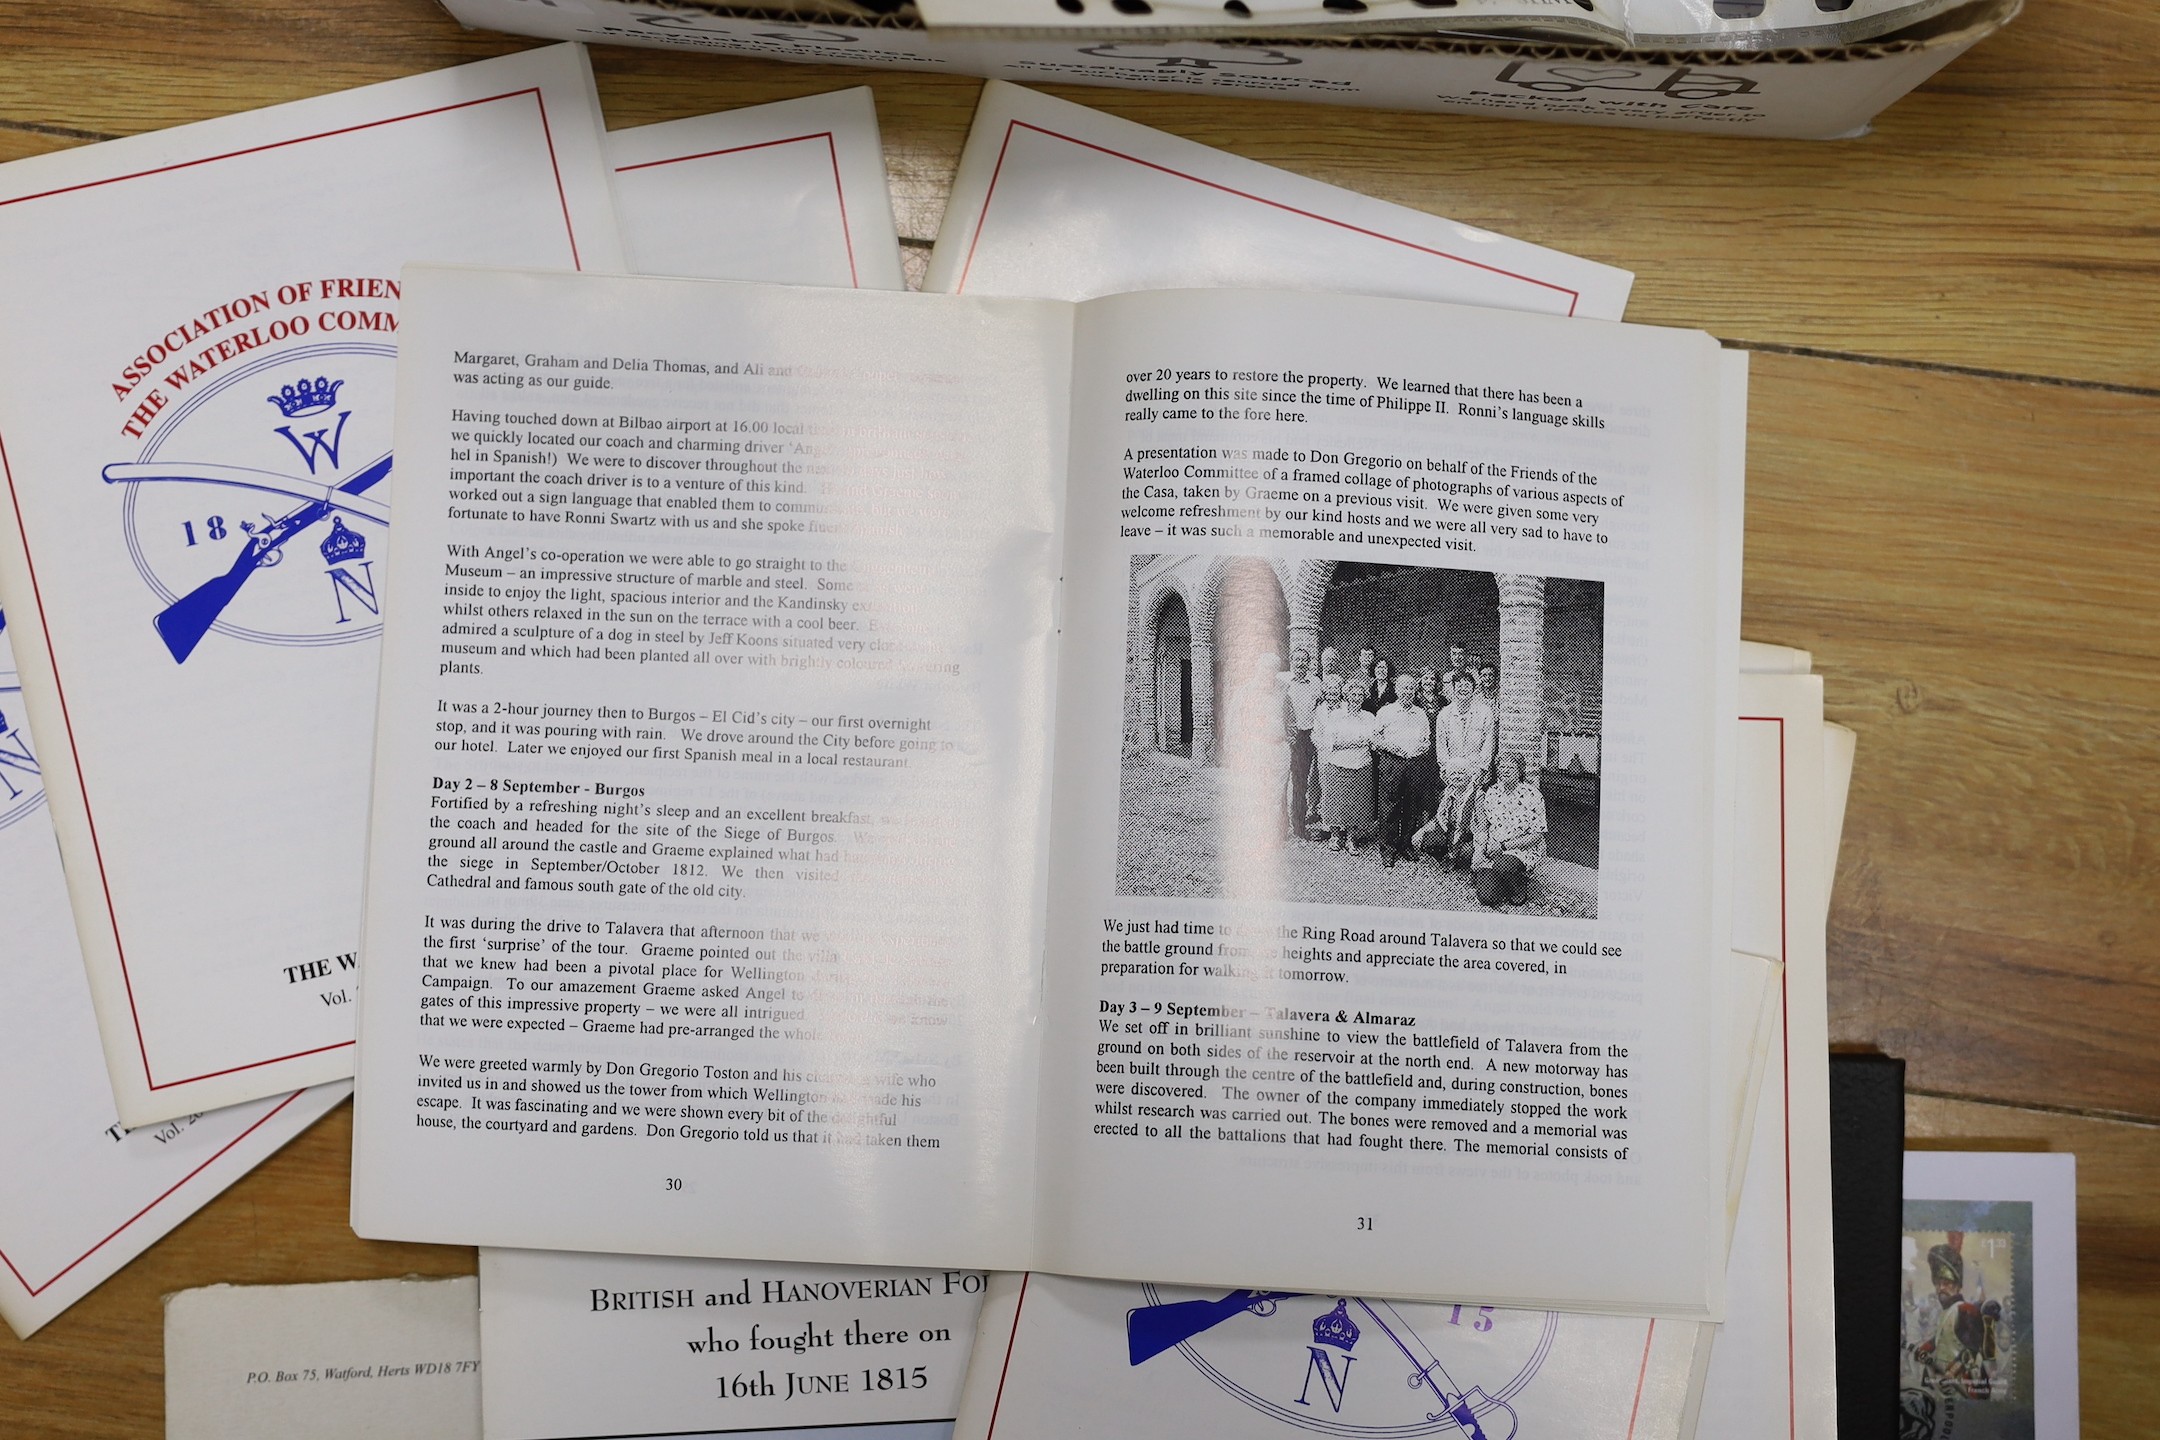 Recyclable Plastics
Sustainably Sourced
Packed with Care
ASSOCIATION OF FRIEN
THE WATERLOO COMM
W
18
N
THE W
Vol.
N
Vol. 20
Margaret, Graham and Delia Thomas, and Ali and
was acting as our guide.
Having touched down at Bilbao airport at 16.00 local
we quickly located our coach and charming driver
hel in Spanish!) We were to discover throughout the
important the coach driver is to a venture of this kind.
worked out a sign language that enabled them to
fortunate to have Ronni Swartz with us and she spoke
With Angel's co-operation we were able to go straight to the
Museum – an impressive structure of marble and steel. Some
inside to enjoy the light, spacious interior and the Kandinsky
whilst others relaxed in the sun on the terrace with a cool beer.
admired a sculpture of a dog in steel by Jeff Koons situated very
museum and which had been planted all over with brightly coloured flowering
plants.
It was a 2-hour journey then to Burgos – El Cid's city – our first overnight
stop, and it was pouring with rain. We drove around the City before going to
our hotel. Later we enjoyed our first Spanish meal in a local restaurant.
Day 2 – 8 September - Burgos
Fortified by a refreshing night's sleep and an excellent breakfast,
the coach and headed for the site of the Siege of Burgos.
ground all around the castle and Graeme explained what had
the siege in September/October 1812. We then visited
Cathedral and famous south gate of the old city.
It was during the drive to Talavera that afternoon that we
the first 'surprise' of the tour. Graeme pointed out the villa
that we knew had been a pivotal place for Wellington
Campaign. To our amazement Graeme asked Angel to
gates of this impressive property – we were all intrigued
that we were expected – Graeme had pre-arranged the whole
We were greeted warmly by Don Gregorio Toston and his wife who
invited us in and showed us the tower from which Wellington made his
escape. It was fascinating and we were shown every bit of the delightful
house, the courtyard and gardens. Don Gregorio told us that it had taken them
30
over 20 years to restore the property. We learned that there has been a
dwelling on this site since the time of Philippe II. Ronni's language skills
really came to the fore here.
A presentation was made to Don Gregorio on behalf of the Friends of the
Waterloo Committee of a framed collage of photographs of various aspects of
the Casa, taken by Graeme on a previous visit. We were given some very
welcome refreshment by our kind hosts and we were all very sad to have to
leave – it was such a memorable and unexpected visit.
We just had time to the Ring Road around Talavera so that we could see
the battle ground from heights and appreciate the area covered, in
preparation for walking it tomorrow.
Day 3 – 9 September – Talavera & Almaraz
We set off in brilliant sunshine to view the battlefield of Talavera from the
ground on both sides of the reservoir at the north end. A new motorway has
been built through the centre of the battlefield and, during construction, bones
were discovered. The owner of the company immediately stopped the work
whilst research was carried out. The bones were removed and a memorial was
erected to all the battalions that had fought there. The memorial consists of
31
BRITISH and HANOVERIAN FO
who fought there on
16th JUNE 1815
P.O. Box 75, Watford, Herts WD18 7FY
15
N
Imperial Guard
French Army